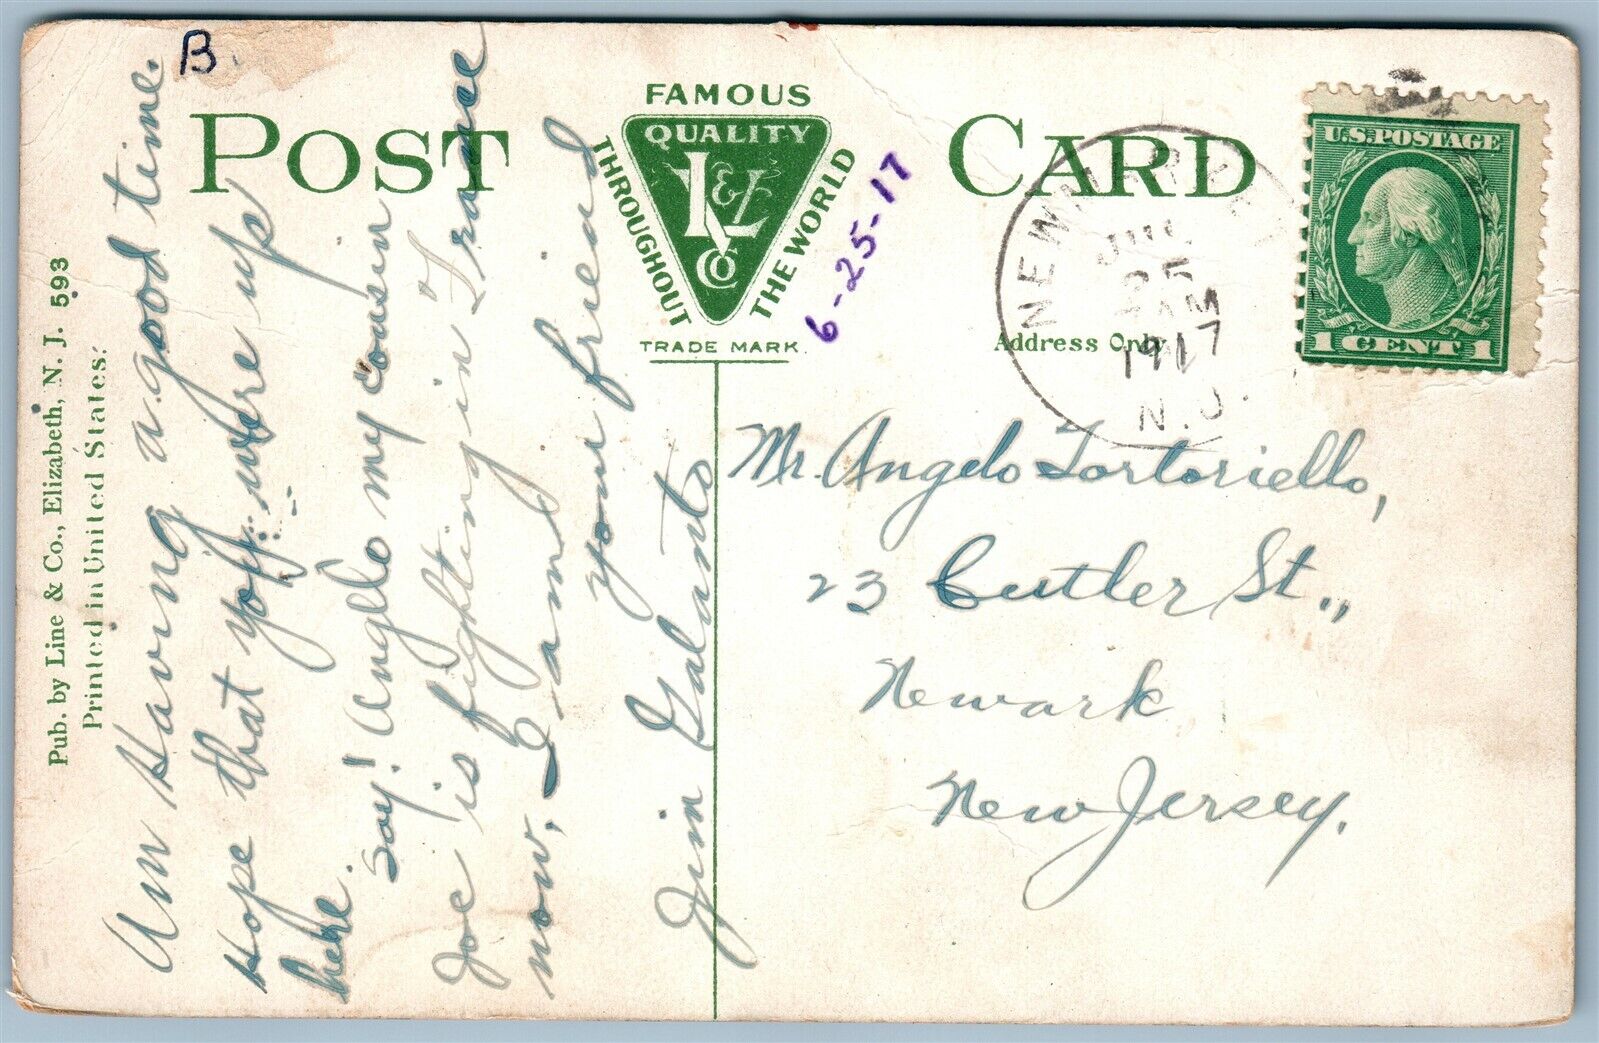 B.
POST CARD
FAMOUS
QUALITY
THROUGHOUT
THE WORLD
L&L
CO
TRADE MARK
6-25-17
Address Only
NEWARK
25
AM
1917
N.J.
U.S. POSTAGE
1 CENT 1
Pub. by Line & Co., Elizabeth, N. J. 593
Printed in United States.
Am Having a good time.
Hope that you were up
here.
Say! Anglo my cousin
Joe is fighting in France
now, I am
your friend
Jim Galanto
Mr. Angelo Tortoriello,
23 Cutler St.,
Newark
New Jersey.